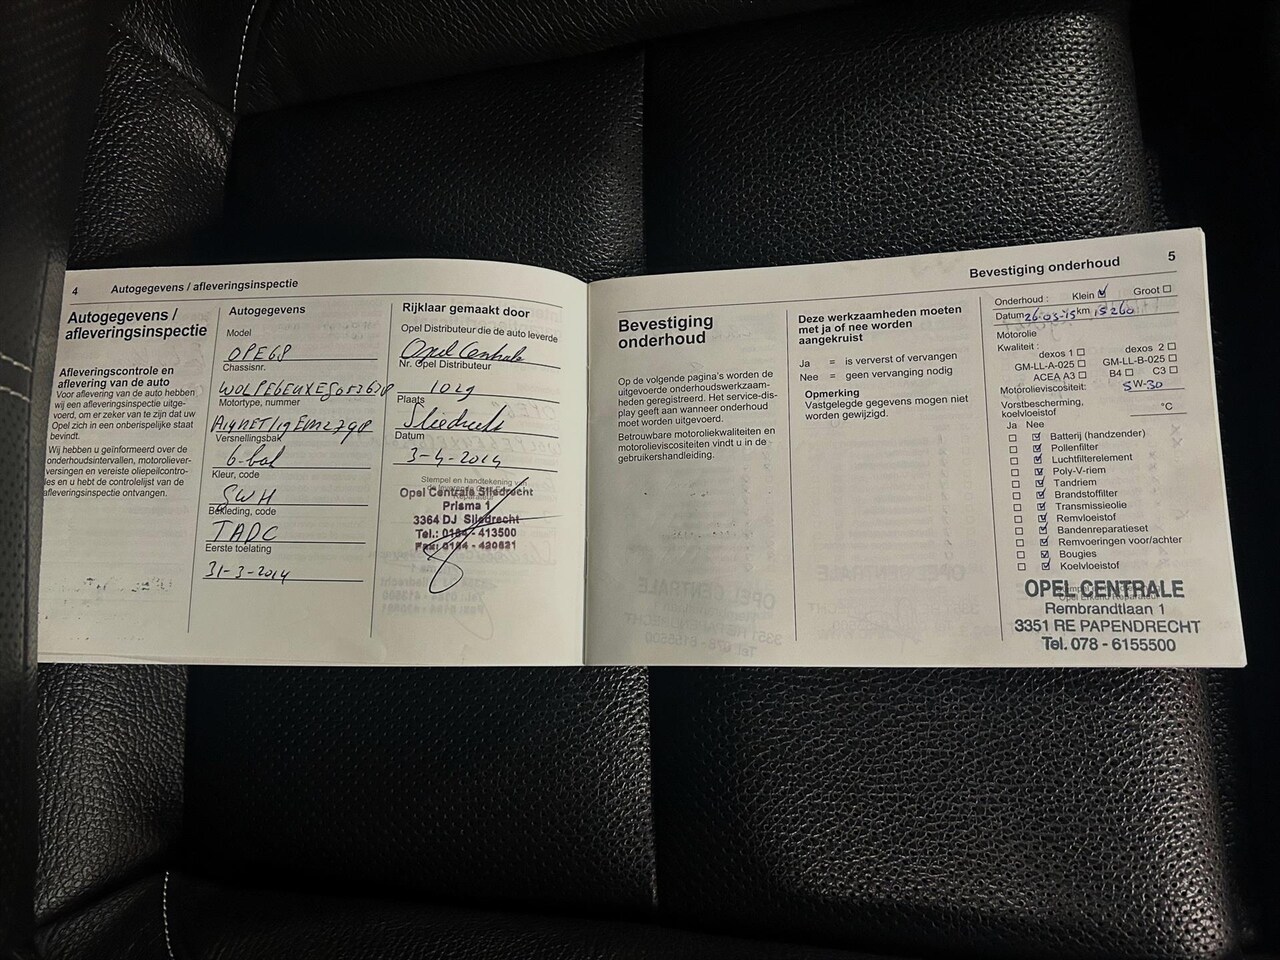 4 Autogegevens / afleveringsinspectie
Autogegevens /
afleveringsinspectie
Afleveringscontrole en
aflevering van de auto
Voor aflevering van de auto hebben
wij een afleveringsinspectie uitge-
voerd, om er zeker van te zijn dat uw
Opel zich in een onberispelijke staat
bevindt.
Wij hebben u geïnformeerd over de
onderhoudsintervallen, motoroliever-
versingen en vereiste oliepeilcontro-
les en u hebt de controlelijst van de
afleveringsinspectie ontvangen.
Autogegevens
Model
OPE68
Chassisnr.
Motortype, nummer
Versnellingsbak
6-bak
Kleur, code
GWH
Bekleding, code
TADC
Eerste toelating
31-3-2014
Rijklaar gemaakt door
Opel Distributeur die de auto leverde
Opel Centrale
Nr. Opel Distributeur
1029
Plaats
Sliedrecht
Datum
3-4-2014
Stempel en handtekening van
Opel Centrale Sliedrecht
Prisma 1
3364 DJ Sliedrecht
Tel.: 0184 - 413500
Fax: 0184 - 420621
Bevestiging onderhoud 5
Bevestiging
onderhoud
Op de volgende pagina's worden de
uitgevoerde onderhoudswerkzaam-
heden geregistreerd. Het service-dis-
play geeft aan wanneer onderhoud
moet worden uitgevoerd.
Betrouwbare motoroliekwaliteiten en
motorolieviscositeiten vindt u in de
gebruikershandleiding.
Deze werkzaamheden moeten
met ja of nee worden
aangekruist
Ja = is ververst of vervangen
Nee = geen vervanging nodig
Opmerking
Vastgelegde gegevens mogen niet
worden gewijzigd.
Onderhoud : Klein ☑ Groot ☐
Datum 26-03-15 km 15260
Motorolie
Kwaliteit :
dexos 1 ☐ dexos 2 ☐
GM-LL-A-025 ☐ GM-LL-B-025 ☐
ACEA A3 ☐ B4 ☐ C3 ☐
Motorolieviscositeit: 5W-30
Vorstbescherming,
koelvloeistof °C
Ja Nee
☐ ☑ Batterij (handzender)
☐ ☑ Pollenfilter
☐ ☑ Luchtfilterelement
☐ ☑ Poly-V-riem
☐ ☑ Tandriem
☐ ☑ Brandstoffilter
☐ ☑ Transmissieolie
☐ ☑ Remvloeistof
☐ ☑ Bandenreparatieset
☐ ☑ Remvoeringen voor/achter
☐ ☑ Bougies
☐ ☑ Koelvloeistof
OPEL CENTRALE
Opel Erkend Reparateur
Rembrandtlaan 1
3351 RE PAPENDRECHT
Tel. 078 - 6155500